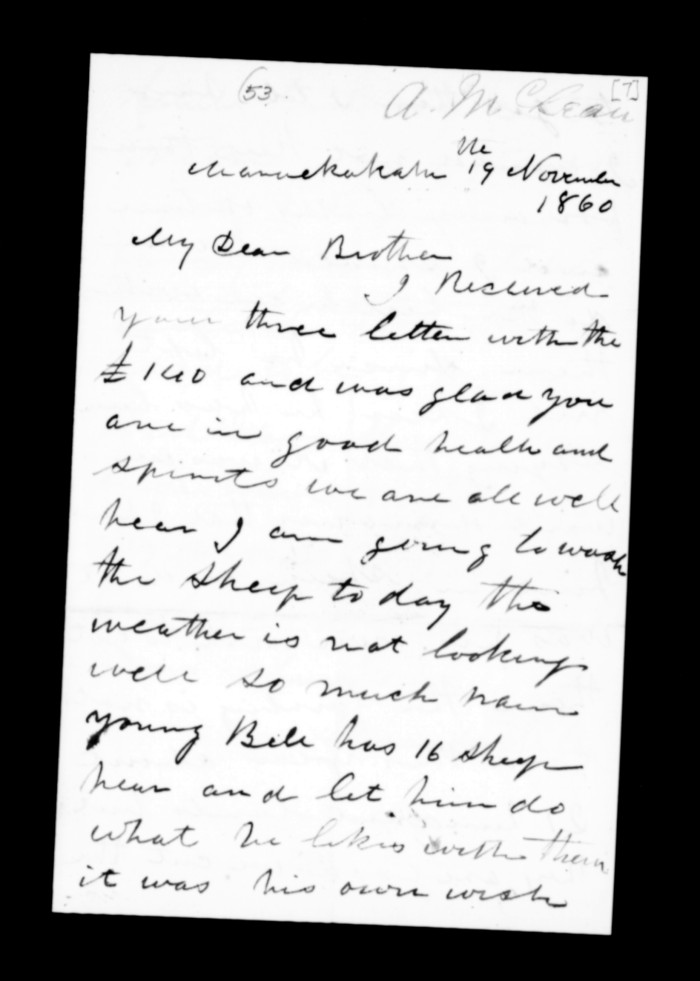 53
[7]
A. McLean
Maraekakaho the 19 November
1860
My Dear Brother
I Received
your three letter with the
£140 and was glad you
are in good health and
spirits we are all well
hear I am going to wash
the sheep to day the
weather is not looking
well so much rain
young Bell has 16 sheep
hear and let him do
what he likes with them
it was his own wish